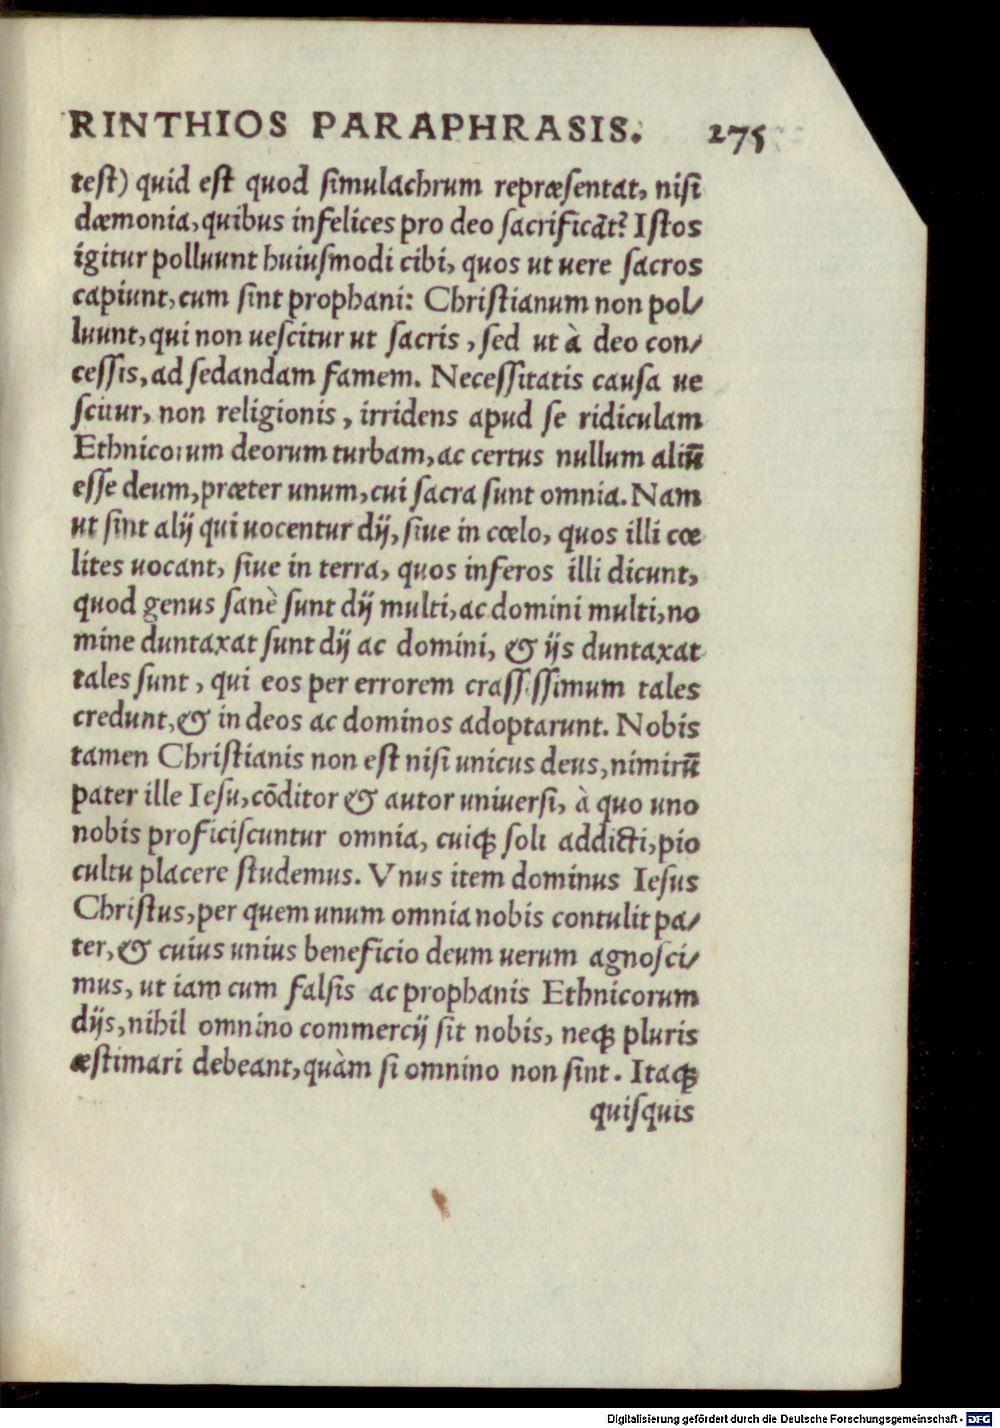 RINTHIOS PARAPHRASIS. 275
test) quid est quod simulachrum repræsentat, nisi
dæmonia, quibus infelices pro deo sacrificāt? Istos
igitur polluunt huiusmodi cibi, quos ut uere sacros
capiunt, cum sint prophani: Christianum non pol/
luunt, qui non uescitur ut sacris, sed ut à deo con/
cessis, ad sedandam famem. Necessitatis causa ue
scitur, non religionis, irridens apud se ridiculam
Ethnicorum deorum turbam, ac certus nullum aliū
esse deum, præter unum, cui sacra sunt omnia. Nam
ut sint alij qui uocentur dij, siue in cœlo, quos illi cœ
lites uocant, siue in terra, quos inferos illi dicunt,
quod genus sanè sunt dij multi, ac domini multi, no
mine duntaxat sunt dij ac domini, & ijs duntaxat
tales sunt, qui eos per errorem crassissimum tales
credunt, & in deos ac dominos adoptarunt. Nobis
tamen Christianis non est nisi unicus deus, nimirū
pater ille Iesu, cōditor & autor uniuersi, à quo uno
nobis proficiscuntur omnia, cuiq; soli addicti, pio
cultu placere studemus. Vnus item dominus Iesus
Christus, per quem unum omnia nobis contulit pa/
ter, & cuius unius beneficio deum uerum agnosci/
mus, ut iam cum falsis ac prophanis Ethnicorum
dijs, nihil omnino commercij sit nobis, neq; pluris
æstimari debeant, quàm si omnino non sint. Itaq;
quisquis
Digitalisierung gefördert durch die Deutsche Forschungsgemeinschaft - DFG